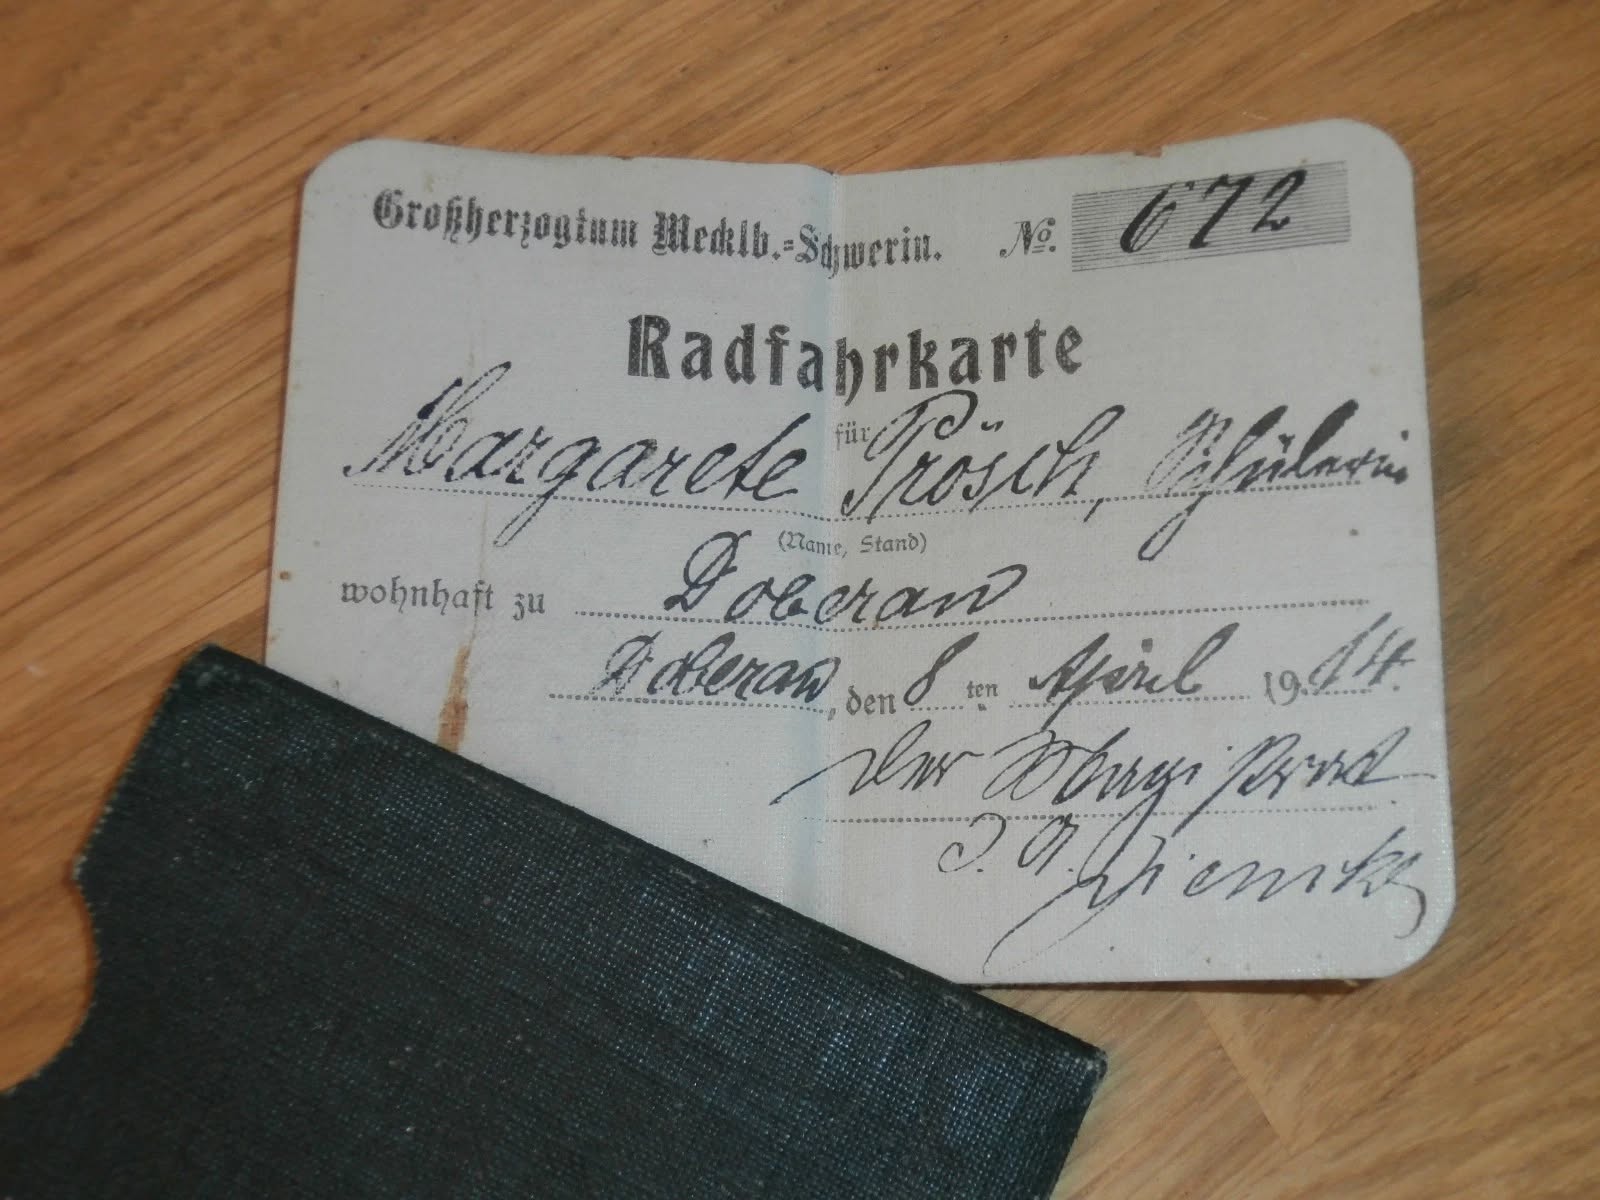 Großherzogtum Mecklb.=Schwerin. No. 672
Radfahrkarte
für
Margarete Prösch, Schülerin
(Name, Stand)
wohnhaft zu Doberan
Doberan, den 8 ten April 1914.
Der Magistrat
I. A.